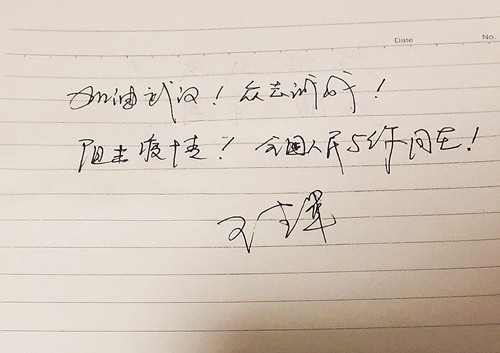 Date
No.
加油武汉！众志成城！
阻击疫情！全国人民与你同在！